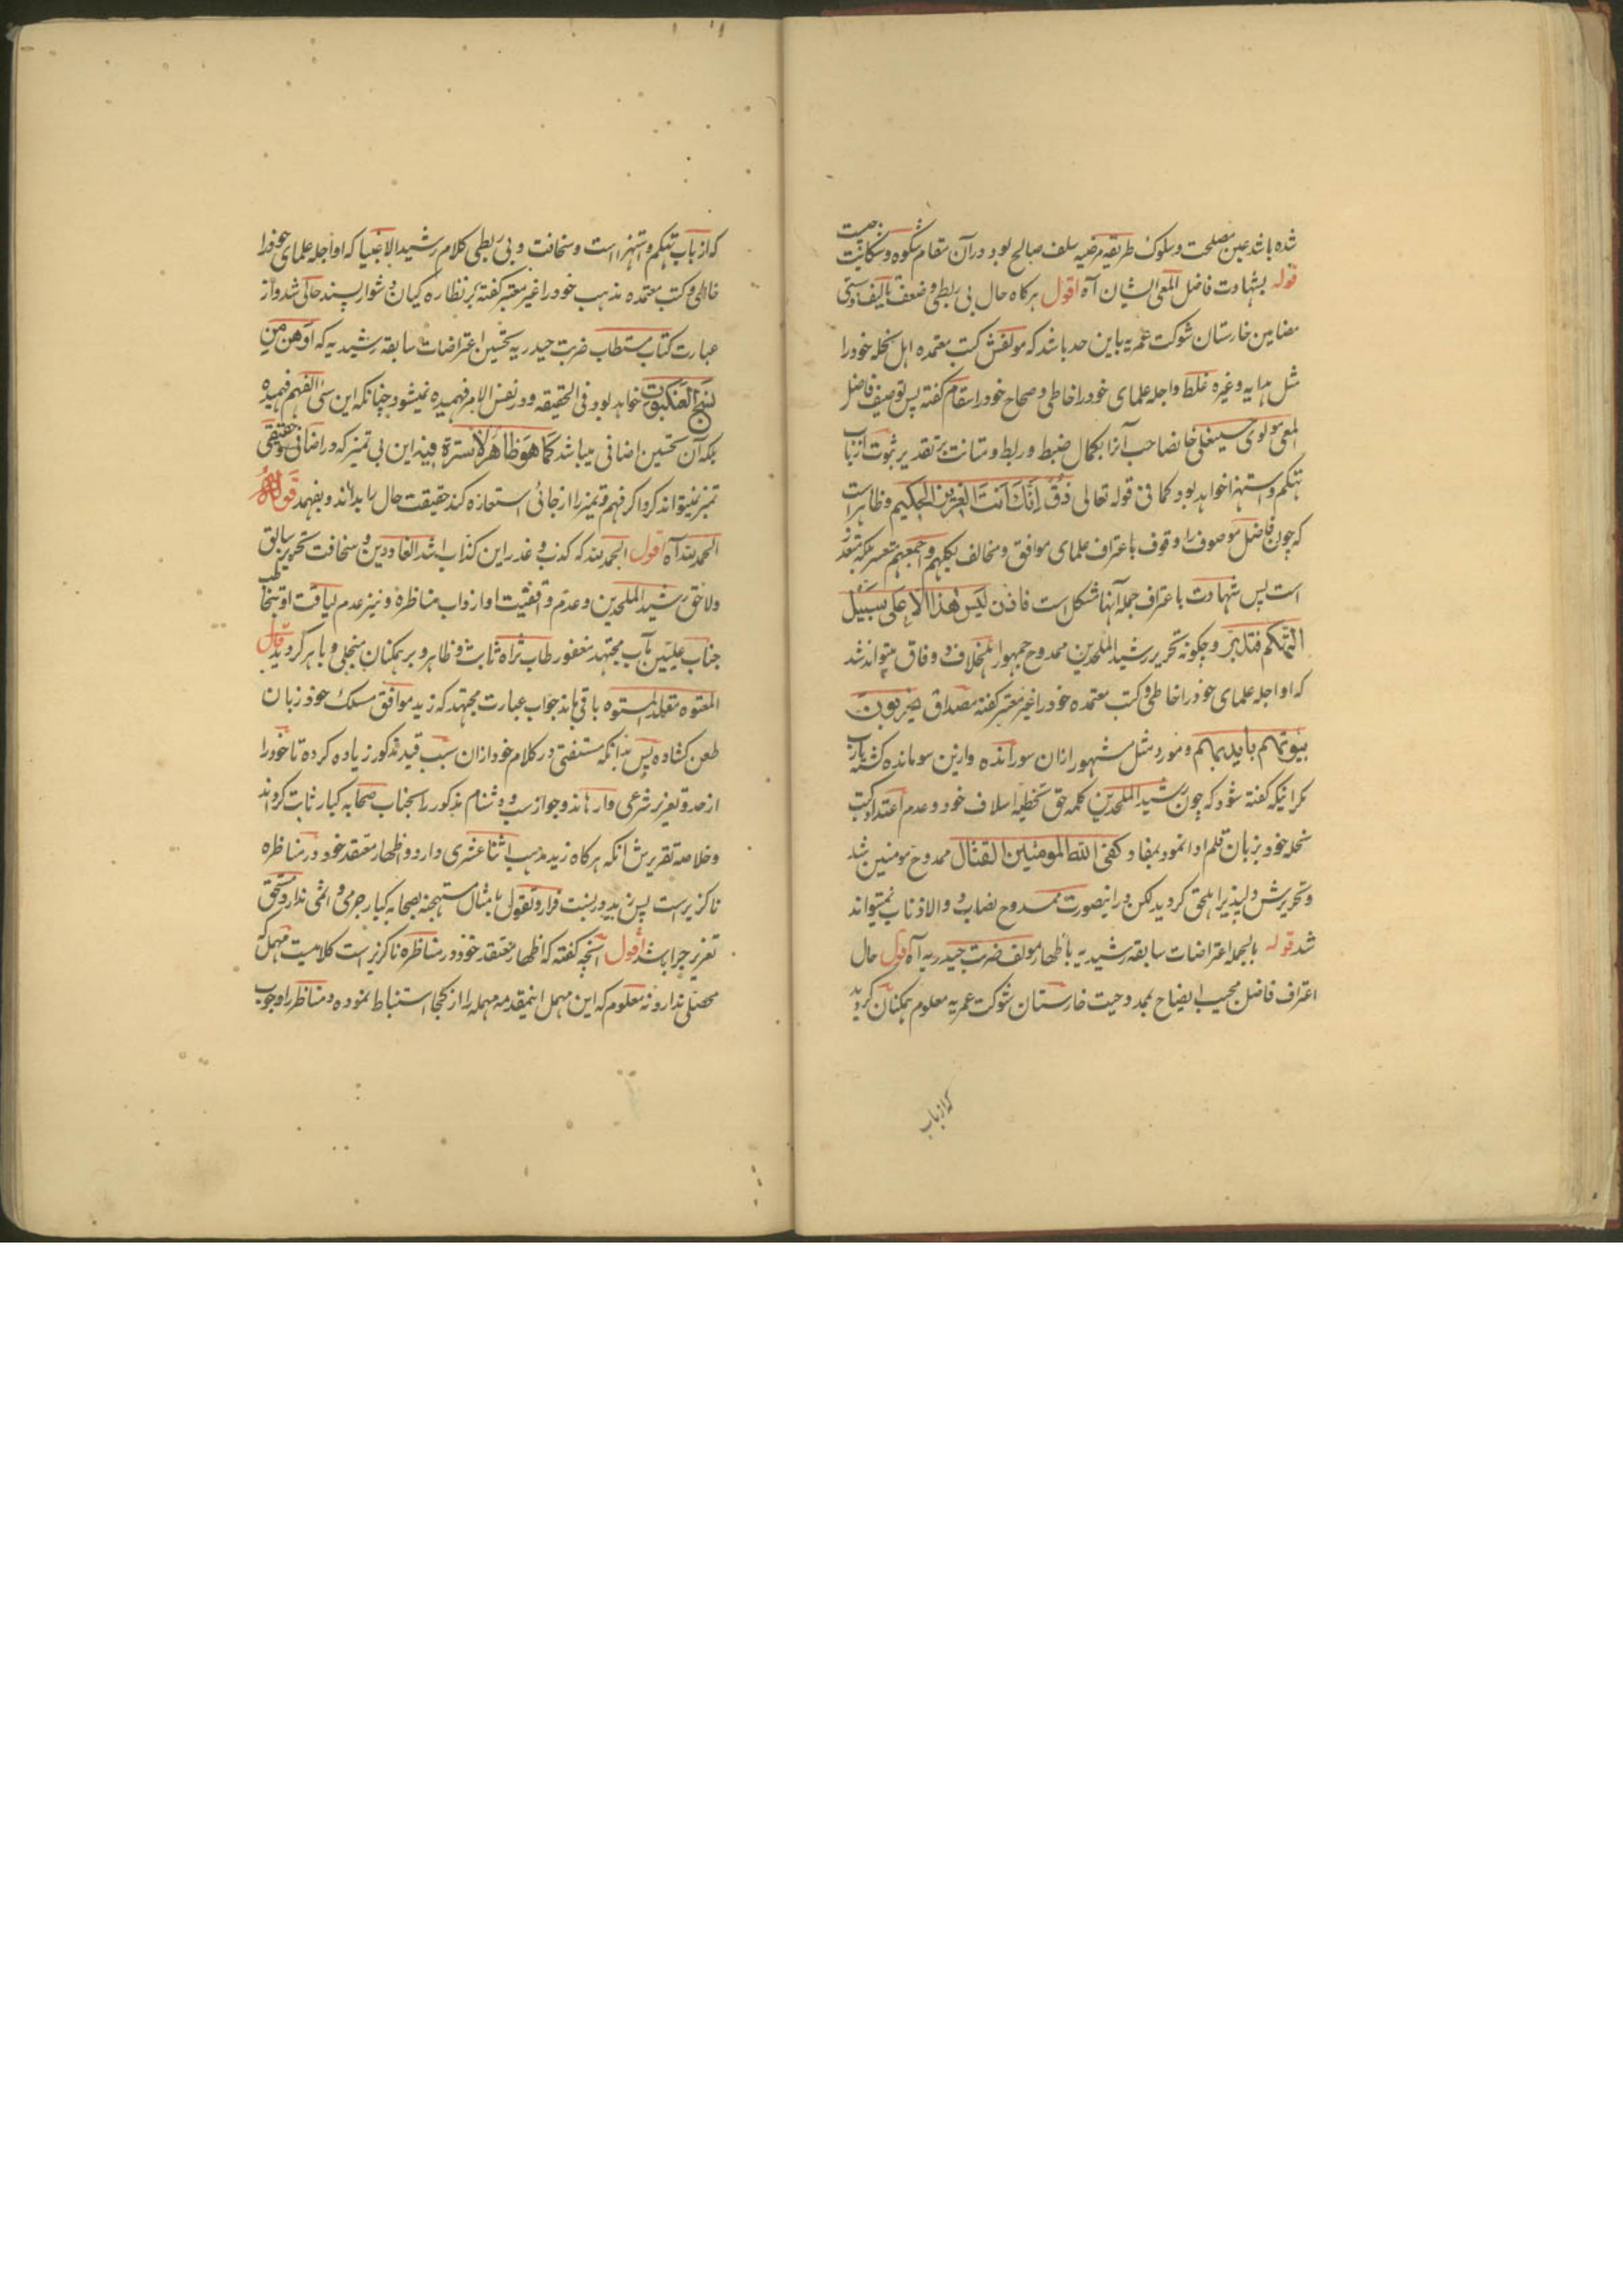 شده باشد عین مصلحت و سلوک طریقه مرضیه سلف صالح بود در آن مقام شکوه و شکایت چیست
قوله بشهادت فاضل المعی الشان آه اقول هرکاه حال بی ربطی و ضعف تالیف و سستی
مضامین خارستان شوکت عمریه باین حد باشد که مولفش کتب معتمده اهل نحله خود را
مثل هدایه و غیره غلط و اجله علمای خود را خاطی و صحاح خود را سقام کفته پس توصیف فاضل
المعی مولوی سبحعلی خانصاحب آنرا بکمال ضبط و ربط و متانت بر تقدیر ثبوت از باب
تهکم و استهزا خواهد بود کما فی قوله تعالی ذُقْ اِنَّكَ اَنْتَ الْعَزِیزُ الْحَکِیمُ و ظاهر است
که چون فاضل موصوف را وقوف باعتراف علمای موافق و مخالف بکلهم و اجمعهم متعسر بلکه متعذر
است پس شهادت باعتراف جمله آنها مشکل است فاذن لَیْسَ هٰذَا اِلّا عَلی سَبِیلِ
التَّهکّم فتدبّر و چکونه تحریر رشید الملحدین ممدوح جمهور اهل خلاف و وفاق میتواند شد
که او اجله علمای خود را خاطی و کتب معتمده خود را غیر معتبر کفته مصداق یخربون
بیوتهم بایدیهم و مورد مثل مشهور ازان سو رانده و ازین سو مانده کشته
مکر اینکه کفته شود که چون رشید الملحدین کلمه حق تخطیه اسلاف خود و عدم اعتداد کتب
نحله خود بزبان قلم ادا نمود بمفاد و کفی الله المومنین القتال ممدوح مومنین شد
و تحریرش دلپذیر اهل حق کردید لکن در اینصورت ممدوح نصاب و والا ذناب نمیتواند
شد قوله بالجمله اعتراضات سابقه رشیدیه باظهار مولف ضربت حیدریه آه اقول حال
اعتراف فاضل مجیب ایضاح بممدوحیت خارستان شوکت عمریه معلوم همکنان کردید
که از باب
که از باب تهکم و استهزا است و سخافت و بی ربطی کلام رشید الاغبیا که او اجله علمای خود را
خاطی و کتب معتمده مذهب خود را غیر معتبر کفته بر نظاره کیان دشوار پسند حالی شد و از
عبارت کتاب مستطاب ضربت حیدریه تحسین اعتراضات سابقه رشیدیه که اَوْهَن مِن
نَسْجِ العَنکبوت خواهد بود فی الحقیقه و در نفس الامر فهمیده نمیشود چنانکه این سئ الفهم فهمیده
بلکه آن تحسین اضافی میباشد کَمَا هُوَ ظَاهِرٌ لَا سُتْرَةَ فیه این بی تمیز که در اضافی و حقیقی
تمیز نمیتواند کرد اکر فهم و تمیز را از جائی استعاره کند حقیقت حال را بداند و بفهمد قوله
الحمد لله آه اقول الحمد لله که کذب و غدر این کذاب اشد الغادرین و سخافت تحریر سابق
ولاحق رشید الملحدین و عدم واقفیت او از داب مناظره و نیز عدم لیاقت او بتخاطب
جناب علیین مآب مجتهد مغفور طاب ثراه ثابت و ظاهر و بر همکنان منجلی و باهر کردید قال
المعتوه مقلد المستوه باقی ماند جواب عبارت مجتهد که زید موافق مسلک خود زبان
طعن کشاده پس بدانکه مستفتی در کلام خود ازان سبب قید مذکور زیاده کرده تا خود را
از حد و تعزیر شرعی وارهاند و جواز سب و دشنام مذکور را بجناب صحابه کبار ثابت کرداند
و خلاصه تقریرش آنکه هرکاه زید مذهب اثنا عشری دارد و اظهار معتقد خود در مناظره
ناکزیر است پس زید در نسبت فرار و تقول بامثال مستهجنه بصحابه کبار جرمی و اثمی ندارد و مستحق
تعزیر چرا باشد اقول آنچه کفته که اظهار معتقد خود در مناظره ناکزیر است کلامیست مهمل که
محصلی ندارد و نه معلوم که این مهمل اینمقدمه مهمله را از کجا استنباط نموده و مناظره را وجوب